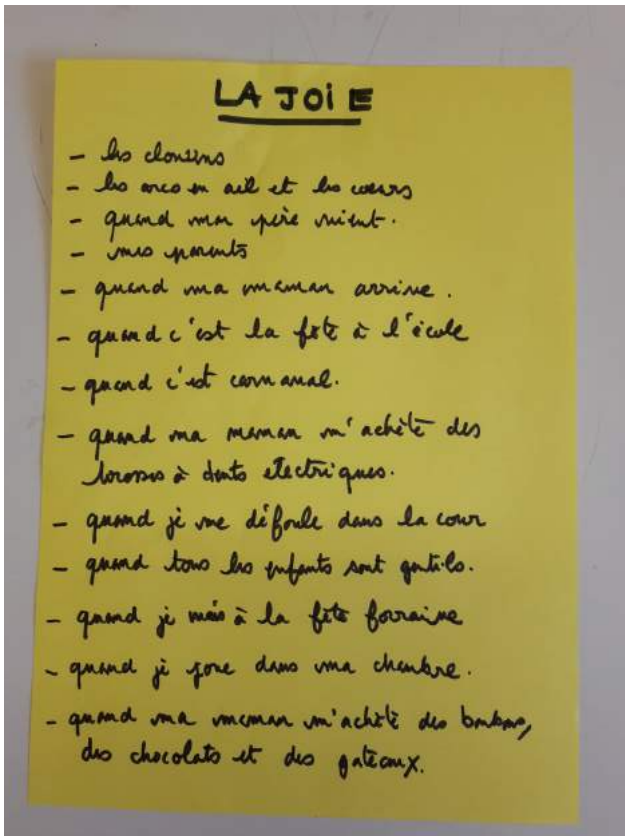 LA JOiE
- les
- les arcs en ciel et les cœurs
- quand mon père vient.
- mes parents
- quand ma maman arrive.
- quand c'est la fête à l'école
- quand c'est carnaval.
- quand ma maman m'achète des
brosses à dents électriques.
- quand je me défoule dans la cour
- quand tous les enfants sont gentils.
- quand je vais à la fête foraine
- quand je joue dans ma chambre.
- quand ma maman m'achète des bonbons,
des chocolats et des gateaux.